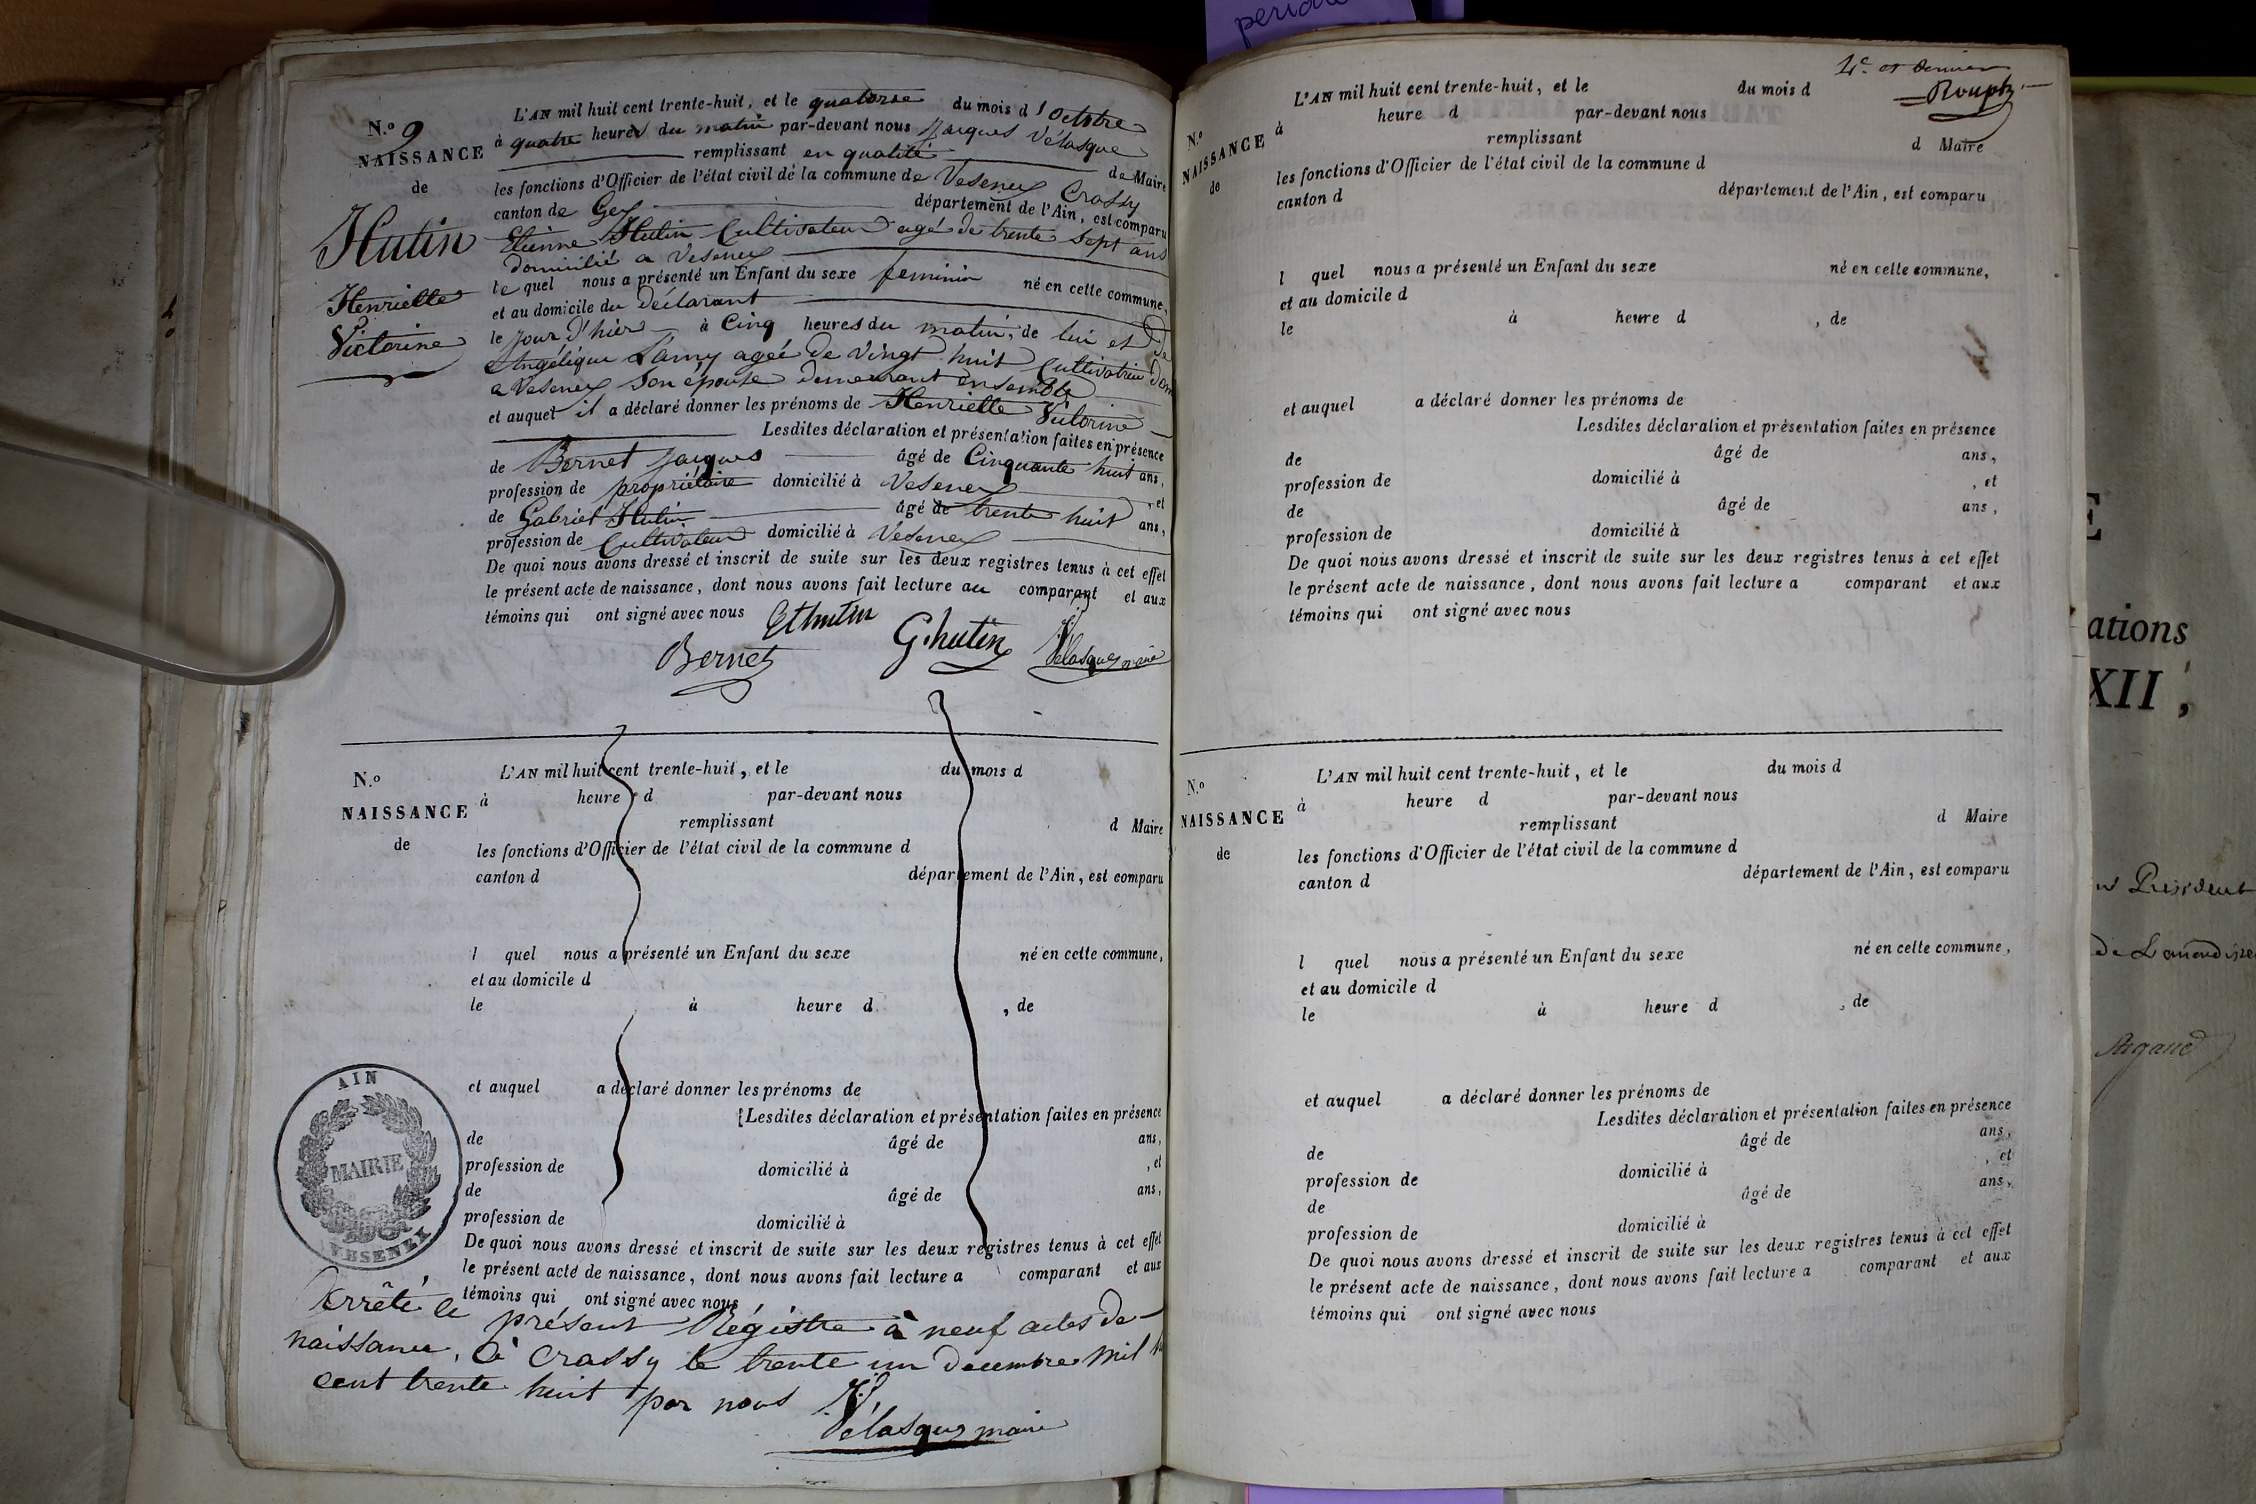 N.º 9
NAISSANCE
de
Hutin
Henriette
Victorine
L'AN mil huit cent trente-huit, et le quatorse du mois d'octobre
à quatre heures du matin par-devant nous Jacques Vélasque
remplissant en qualité de Maire
les fonctions d'Officier de l'état civil de la commune de Vesenex Crassy
canton de Gex département de l'Ain, est comparu
Etienne Hutin Cultivateur agé de trente sept ans
domicilié a Vesenex
le quel nous a présenté un Enfant du sexe feminin né en cette commune,
et au domicile du déclarant
le jour d'hier à Cinq heures du matin, de lui et de
Angélique Lamy agée de vingt huit Cultivatrice dom
a Vesenex son épouse demeurant ensemble
et auquel il a déclaré donner les prénoms de Henriette Victorine
Lesdites déclaration et présentation faites en présence
de Bernet Jacques âgé de Cinquante huit ans,
profession de propriétaire domicilié à Vesenex , et
de Gabriel Hutin âgé de trente huit ans,
profession de Cultivateur domicilié à Vesenex
De quoi nous avons dressé et inscrit de suite sur les deux registres tenus à cet effet
le présent acte de naissance, dont nous avons fait lecture au comparant et aux
témoins qui ont signé avec nous Et hutin
Bernet G. hutin Vélasque maire
N.º
NAISSANCE
de
L'AN mil huit cent trente-huit, et le du mois d
à heure d par-devant nous
remplissant d Maire
les fonctions d'Officier de l'état civil de la commune d
canton d département de l'Ain, est comparu
l quel nous a présenté un Enfant du sexe né en cette commune,
et au domicile d
le à heure d , de
et auquel a déclaré donner les prénoms de
Lesdites déclaration et présentation faites en présence
de âgé de ans,
profession de domicilié à , et
de âgé de ans,
profession de domicilié à
De quoi nous avons dressé et inscrit de suite sur les deux registres tenus à cet effet
le présent acte de naissance, dont nous avons fait lecture a comparant et aux
témoins qui ont signé avec nous
AIN
MAIRIE
VESENEX
Arrêté le présent Régistre à neuf actes de
naissance, à Crassy le trente un decembre mil
cent trente huit par nous
Vélasque maire
periode
4e et dernier
N.º
NAISSANCE
de
L'AN mil huit cent trente-huit, et le du mois d
à heure d par-devant nous
remplissant d Maire
les fonctions d'Officier de l'état civil de la commune d
canton d département de l'Ain, est comparu
l quel nous a présenté un Enfant du sexe né en cette commune,
et au domicile d
le à heure d , de
et auquel a déclaré donner les prénoms de
Lesdites déclaration et présentation faites en présence
de âgé de ans,
profession de domicilié à , et
de âgé de ans,
profession de domicilié à
De quoi nous avons dressé et inscrit de suite sur les deux registres tenus à cet effet
le présent acte de naissance, dont nous avons fait lecture a comparant et aux
témoins qui ont signé avec nous
N.º
NAISSANCE
de
L'AN mil huit cent trente-huit, et le du mois d
à heure d par-devant nous
remplissant d Maire
les fonctions d'Officier de l'état civil de la commune d
canton d département de l'Ain, est comparu
l quel nous a présenté un Enfant du sexe né en cette commune,
et au domicile d
le à heure d , de
et auquel a déclaré donner les prénoms de
Lesdites déclaration et présentation faites en présence
de âgé de ans,
profession de domicilié à , et
de âgé de ans,
profession de domicilié à
De quoi nous avons dressé et inscrit de suite sur les deux registres tenus à cet effet
le présent acte de naissance, dont nous avons fait lecture a comparant et aux
témoins qui ont signé avec nous
E
ations
XII,
Président